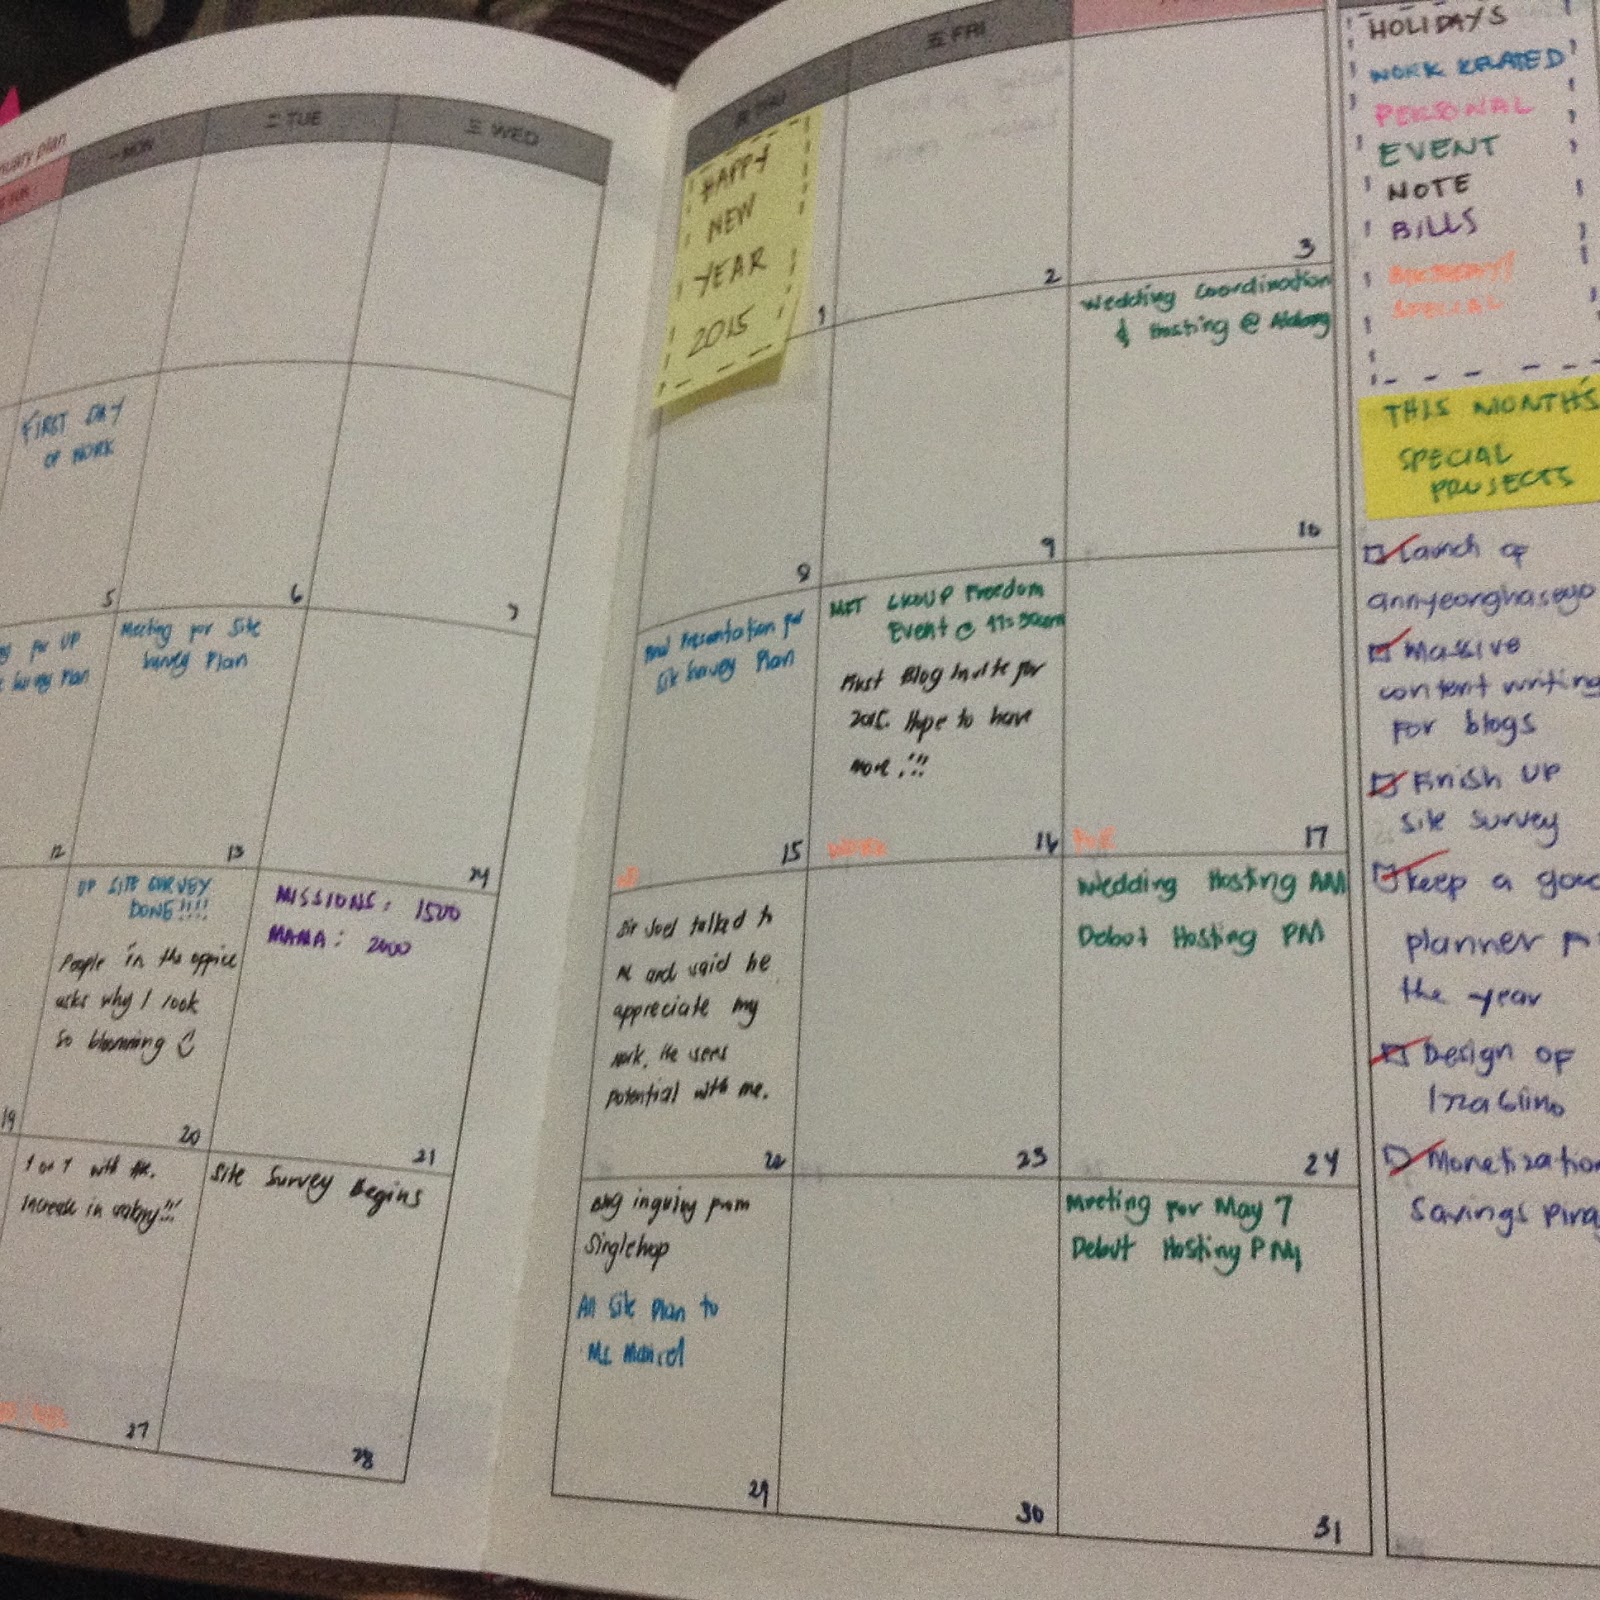 nuary plan
一 MON
二 TUE
三 WED
FRI
HAPPY
NEW
YEAR
2015
1
2
3
FIRST DAY
OF WORK
5
6
7
8
Wedding Coordination
& Hosting @
9
10
for UP
Survey Plan
12
Meeting for Site
Survey Plan
13
14
Presentation for
Site Survey Plan
15
MET GROUP Freedom
Event @ 11:30am
First Blog Invite for
2015. Hope to have
more!!!
16
17
19
UP SITE SURVEY
DONE!!!!
People in the office
asks why I look
so blooming
20
MISSIONS: 1500
MAMA: 2000
21
Sir Joel talked to
me and said he
appreciate my
work. He sees
potential with me.
22
23
Wedding Hosting AM
Debut Hosting PM
24
1 on 1 with
Increase in salary!!!
27
Site Survey Begins
28
inquiry from
Singlehop
All Site Plan to
Ms
29
30
Meeting for May 7
Debut Hosting PM
31
HOLIDAYS
WORK RELATED
PERSONAL
EVENT
NOTE
BILLS
BIRTHDAY!
SPECIAL
THIS MONTH'S
SPECIAL
PROJECTS
Launch of
annyeonghaseyo
Massive
content writing
for blogs
Finish UP
site survey
keep a good
planner
the year
Design of
Monetization
Savings